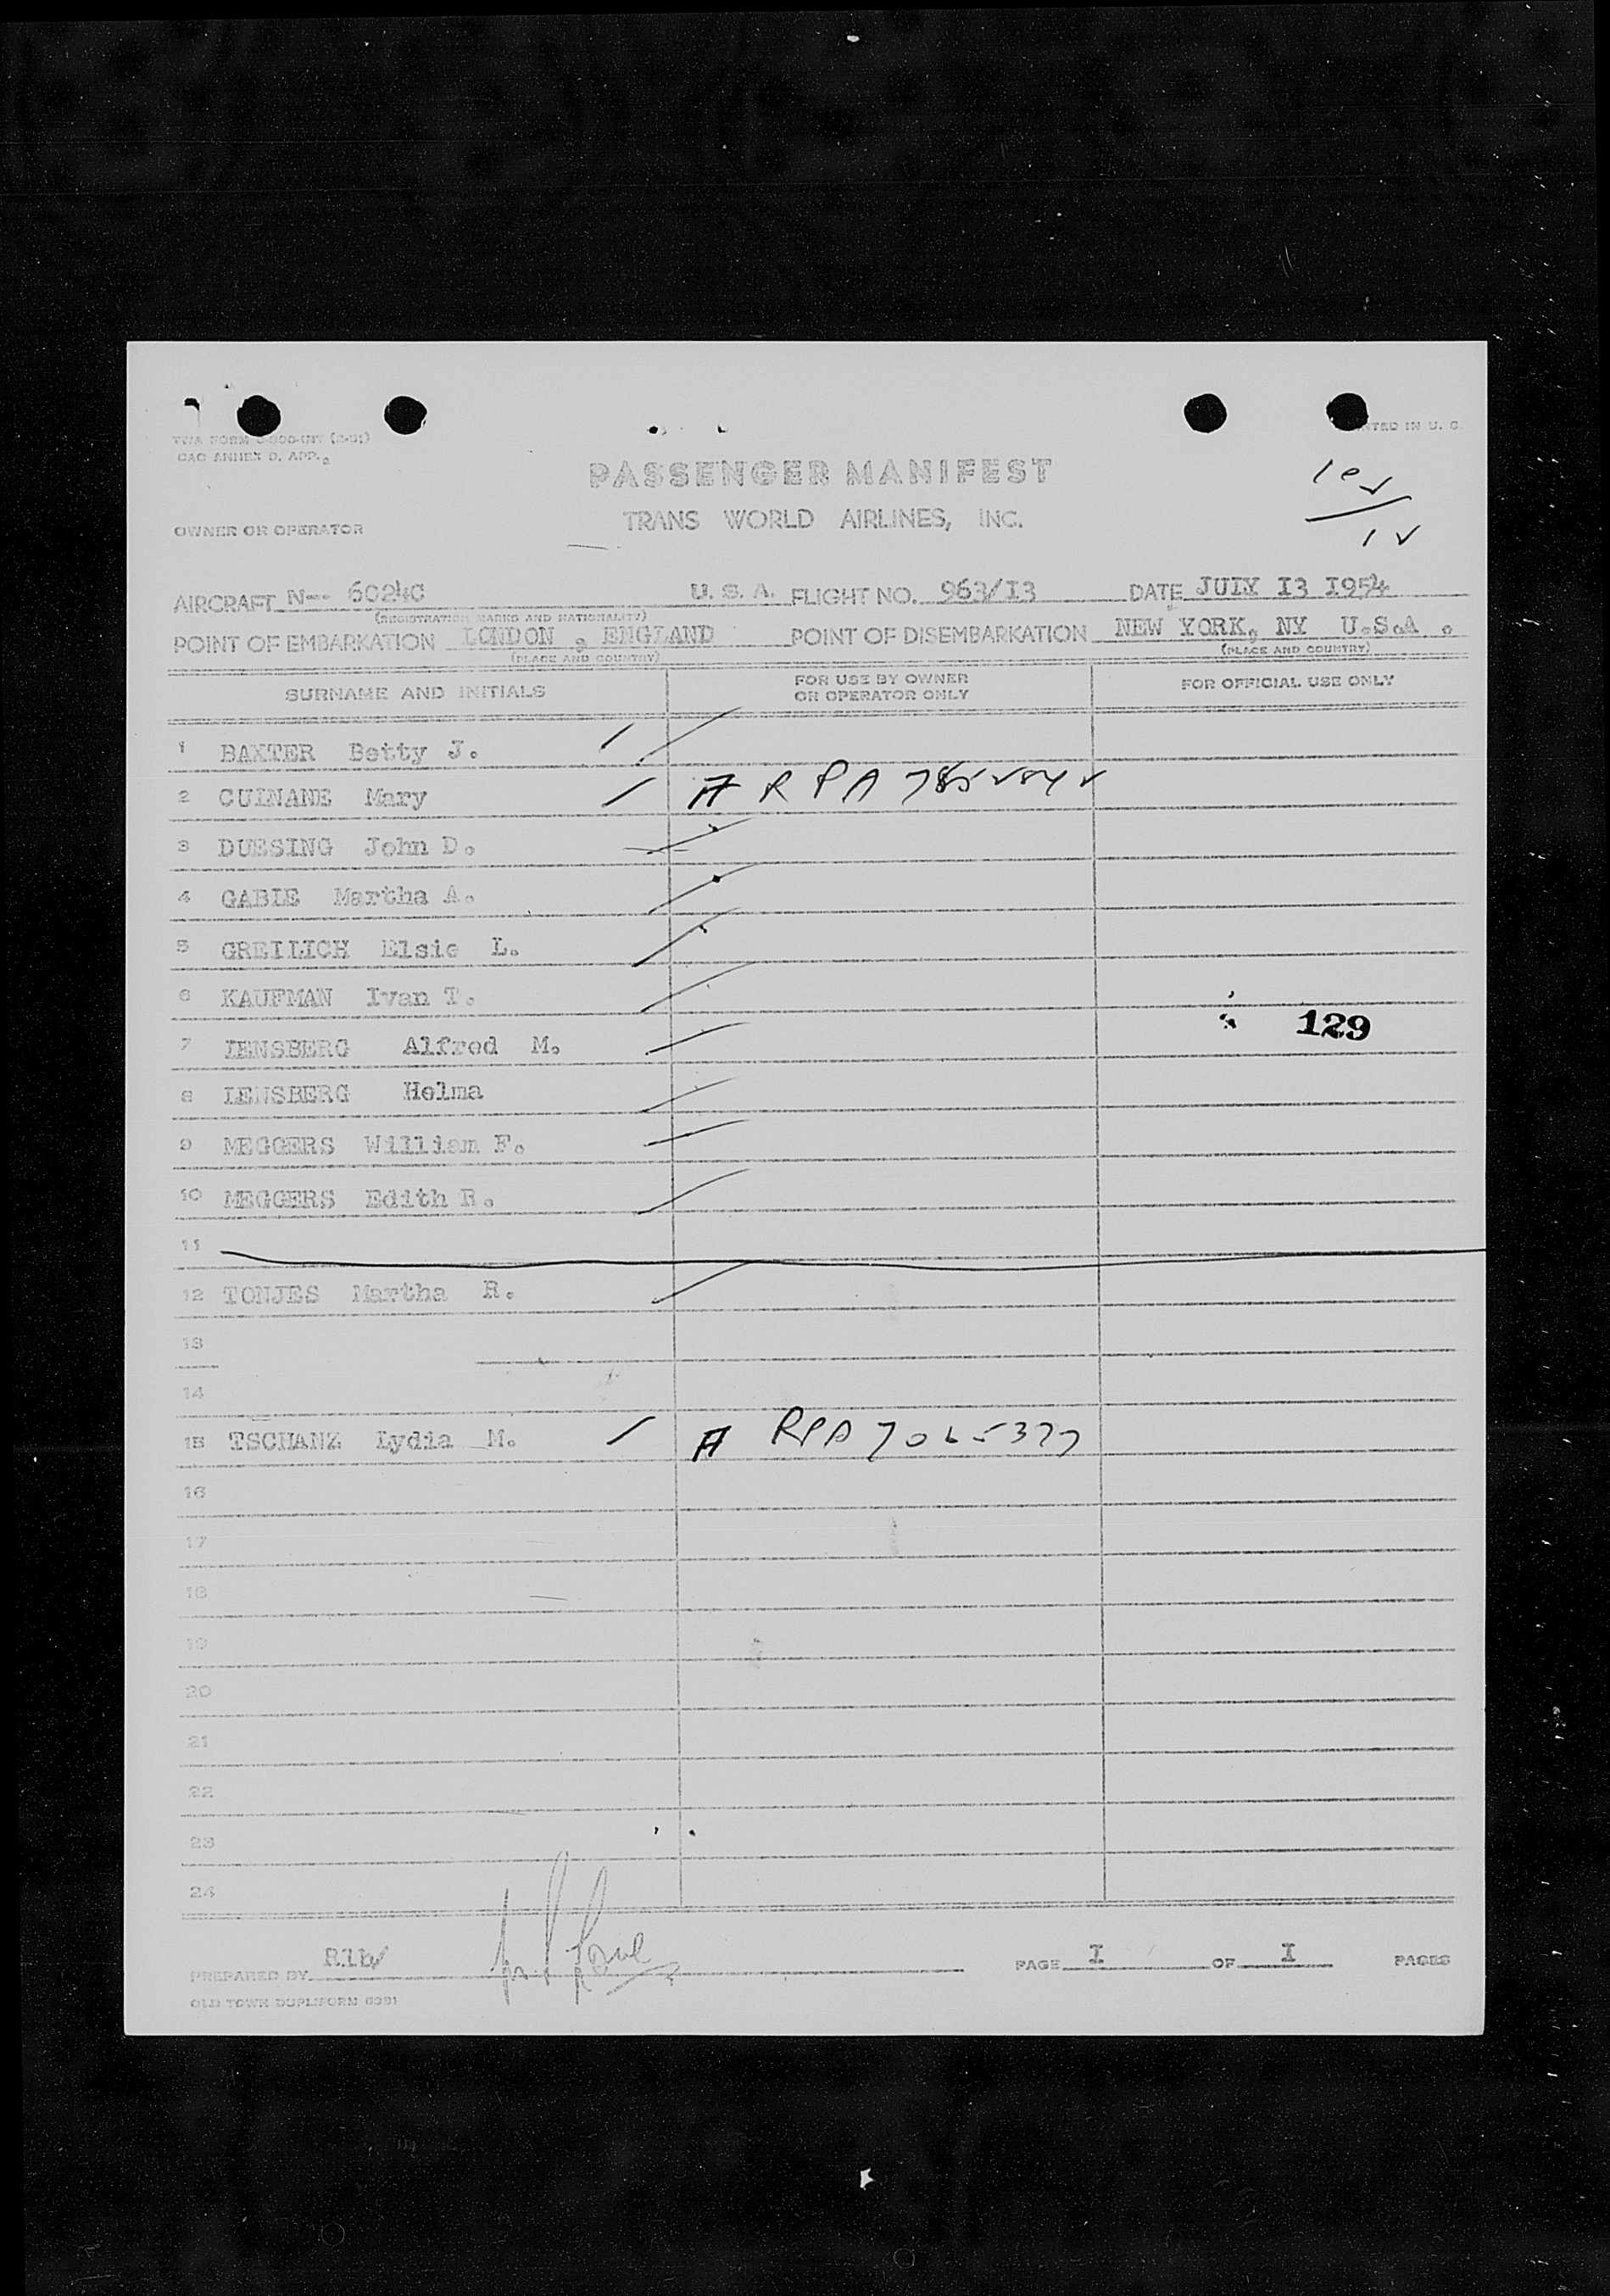 PRINTED IN U. S.
CAO ANNEX D, APP.
PASSENGER MANIFEST
OWNER OR OPERATOR
TRANS WORLD AIRLINES, INC.
AIRCRAFT N-- 6024C U. S. A. FLIGHT NO. 963/I3 DATE JULY I3 I954
(REGISTRATION MARKS AND NATIONALITY)
POINT OF EMBARKATION LONDON , ENGLAND POINT OF DISEMBARKATION NEW YORK, NY U.S.A .
(PLACE AND COUNTRY) (PLACE AND COUNTRY)
SURNAME AND INITIALS FOR USE BY OWNER OR OPERATOR ONLY FOR OFFICIAL USE ONLY
1 BAXTER Betty J.
2 CUINANE Mary A RPA
3 DUESING John D.
4 GABLE Martha A.
5 GREILICH Elsie L.
6 KAUFMAN Ivan T.
129
7 LENSBERG Alfred M.
8 LENSBERG Helma
9 MEGGERS William F.
10 MEGGERS Edith R.
11
12 TONJES Martha R.
13
14
15 TSCHANZ Lydia M. A RPA
16
17
18
19
20
21
22
23
24
PREPARED BY PAGE I OF I PAGES
OLD TOWN DUPLIFORM